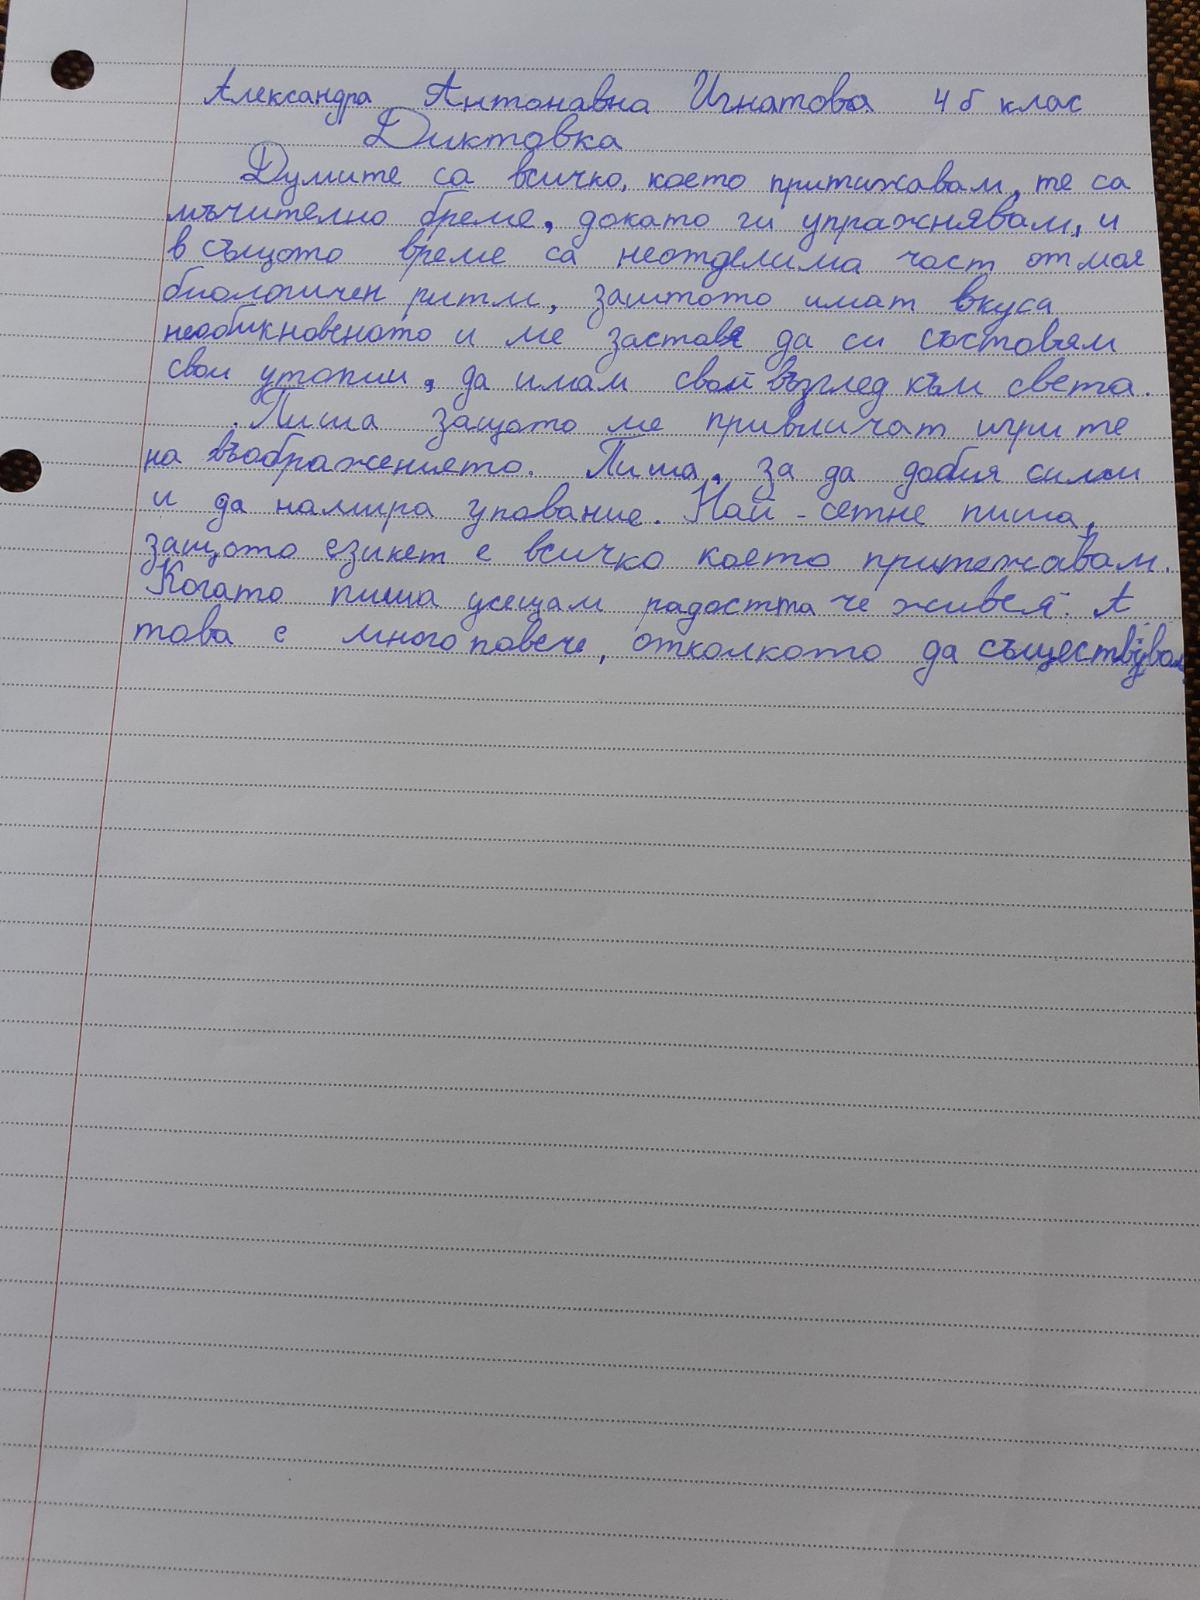 Александра Антонавна Игнатова 4 б клас
Диктовка
Думите са всичко, което притижавам, те са
мъчително бреме, докато ги упражнявам, и
в същото време са неотделима част от моя
биологичен ритм, заштото имат вкуса
необикновеното и ме заставя да си съставям
свои утопии, да имам свой възглед към света.
Пиша защото ме привличат игрите
на въображението. Пиша, за да добия сили
и да намира упование. Най-сетне пиша,
защото езикет е всичко което притежавам.
Когато пиша усещам радостта че живея. А
това е много повече, отколкото да съществувам